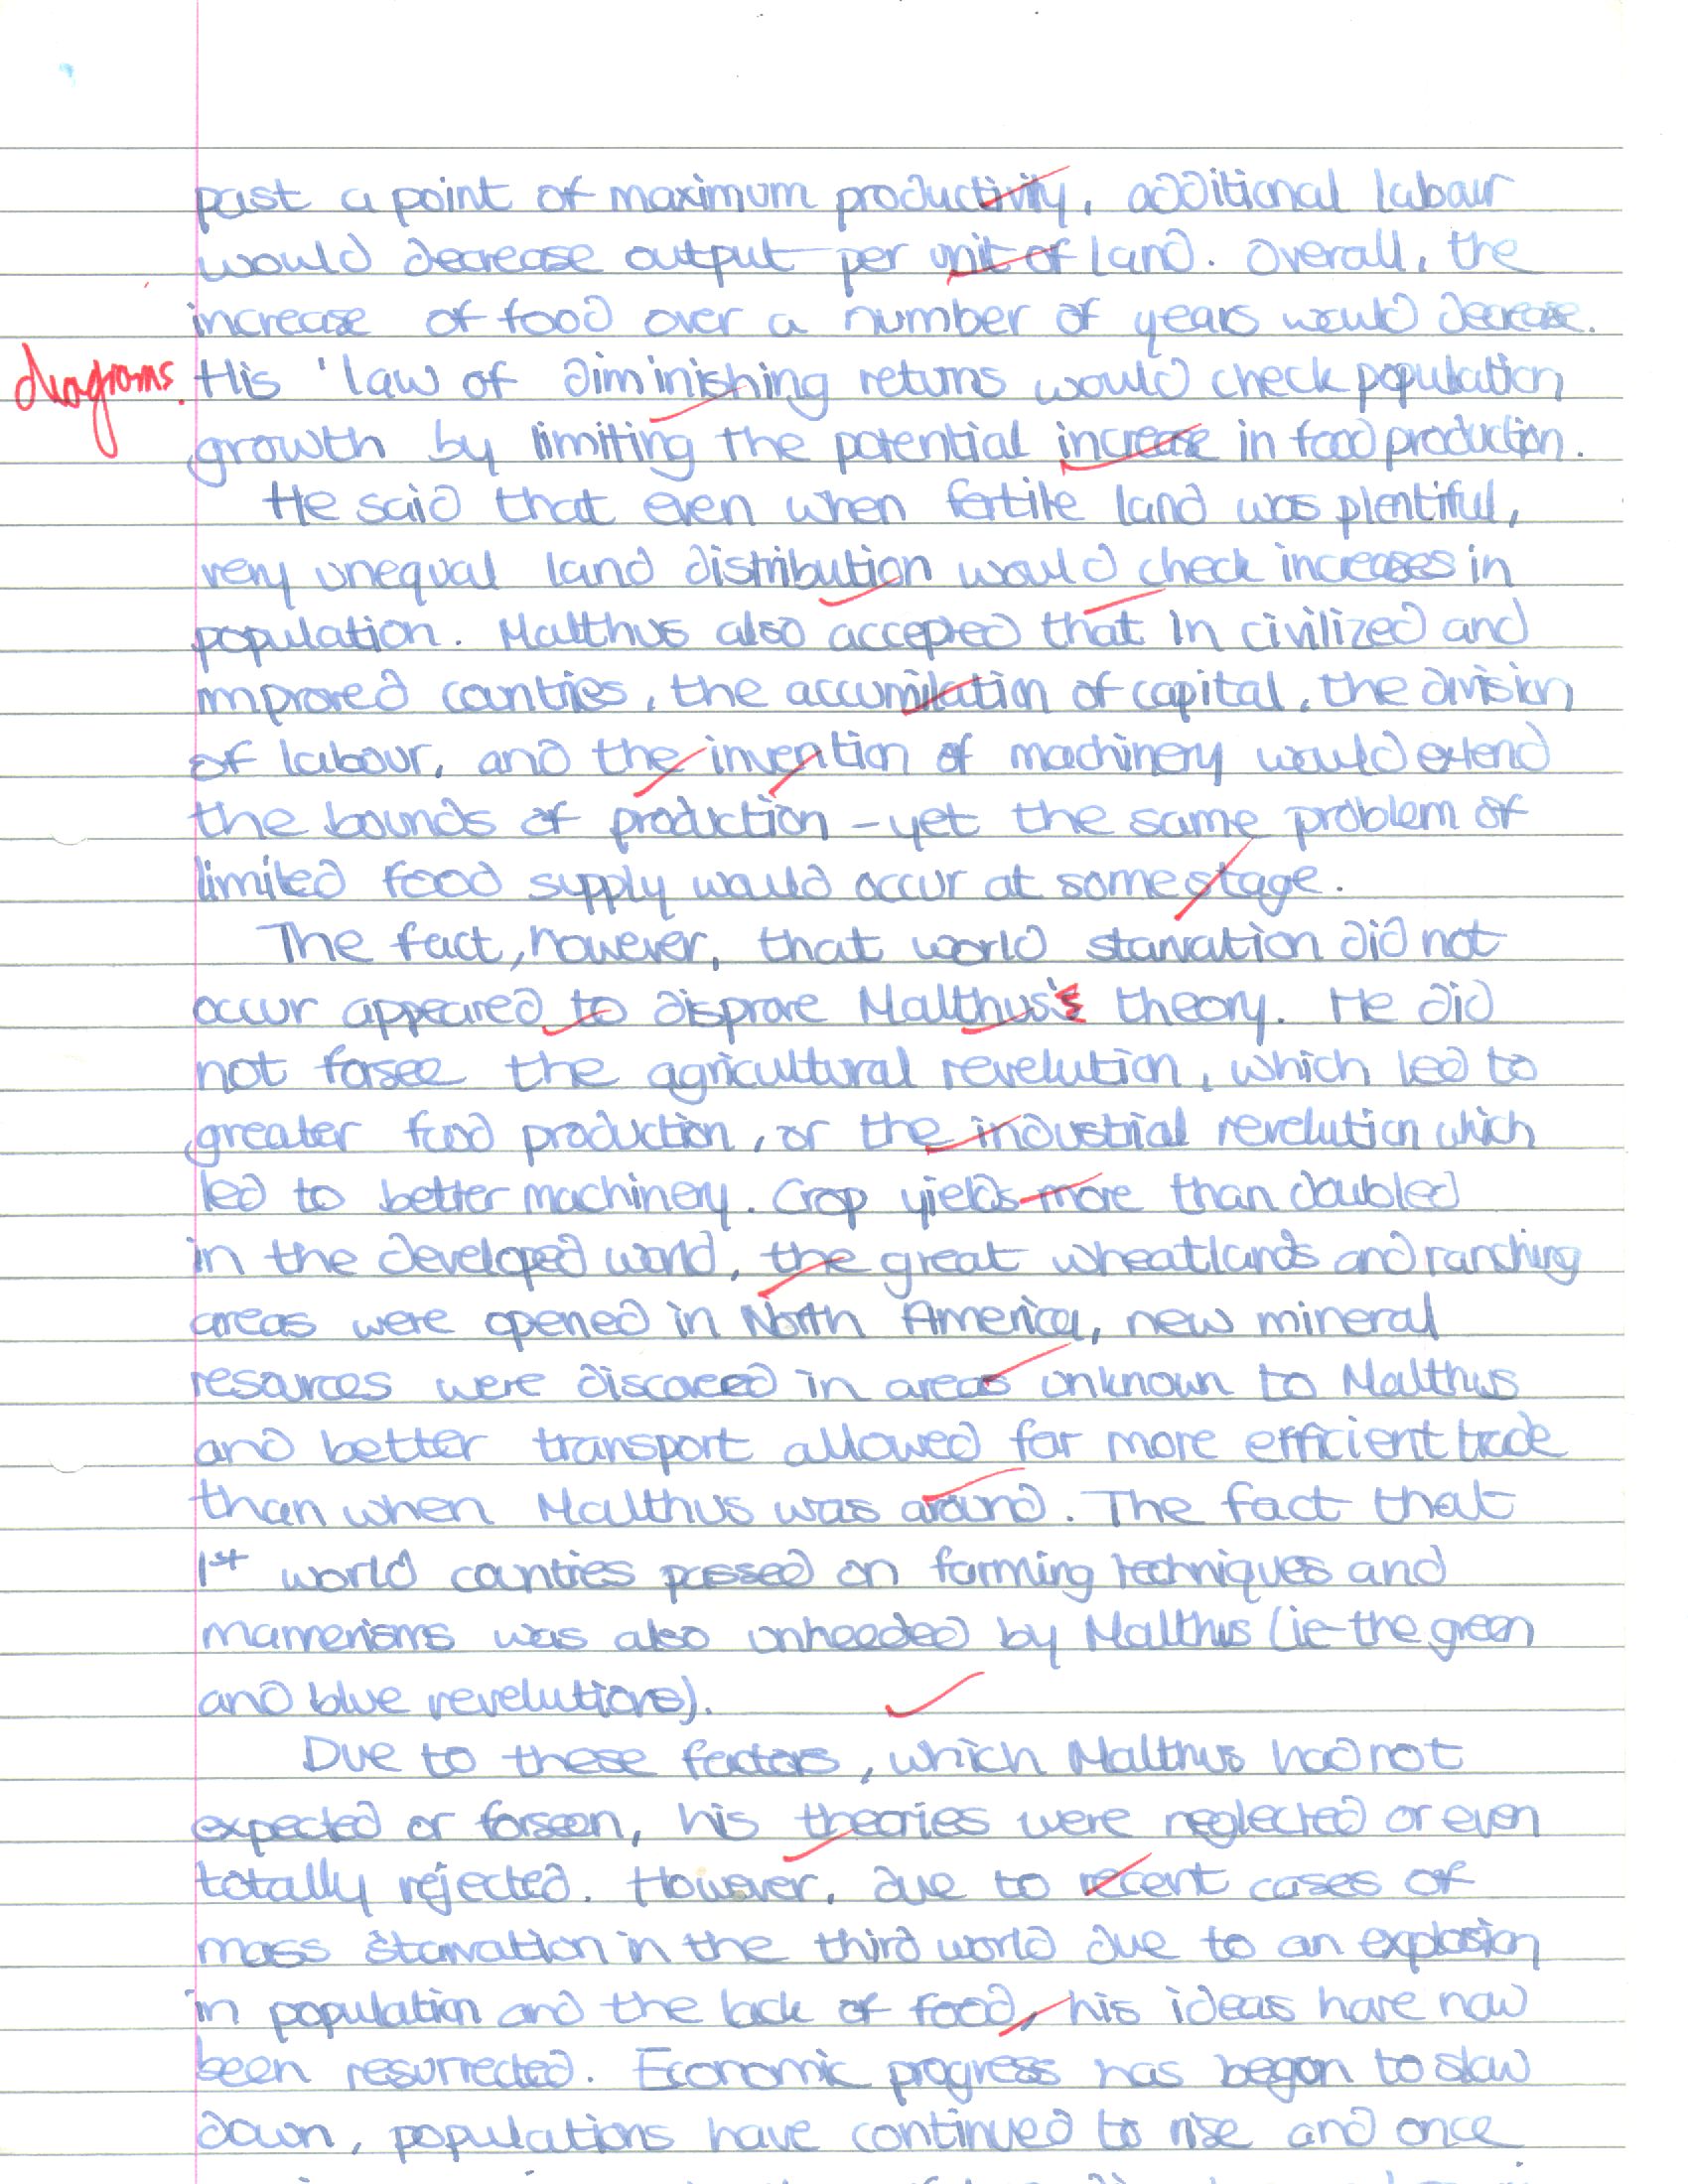 past a point of maximum productivity, additional labour
would decrease output per unit of land. Overall, the
increase of food over a number of years would decrease.
diagrams. His 'law of diminishing returns would check population
growth by limiting the potential increase in food production.
He said that even when fertile land was plentiful,
very unequal land distribution would check increases in
population. Malthus also accepted that in civilized and
improved countries, the accumilation of capital, the division
of labour, and the invention of machinery would extend
the bounds of production - yet the same problem of
limited food supply would occur at some stage.
The fact, however, that world starvation did not
occur appeared to disprove Malthus's theory. He did
not forsee the agricultural revelution, which led to
greater food production, or the industrial revelution which
led to better machinery. Crop yields more than doubled
in the developed world, the great wheatlands and ranching
areas were opened in North America, new mineral
resources were discovered in areas unknown to Malthus
and better transport allowed for more efficient trade
than when Malthus was around. The fact that
1st world countries passed on farming techniques and
mannerisms was also unheeded by Malthus (ie the green
and blue revelutions).
Due to these factors, which Malthus had not
expected or forseen, his theories were neglected or even
totally rejected. However, due to recent cases of
mass starvation in the third world due to an explosion
in population and the lack of food, his ideas have now
been resurrected. Economic progress has began to slow
down, populations have continued to rise and once